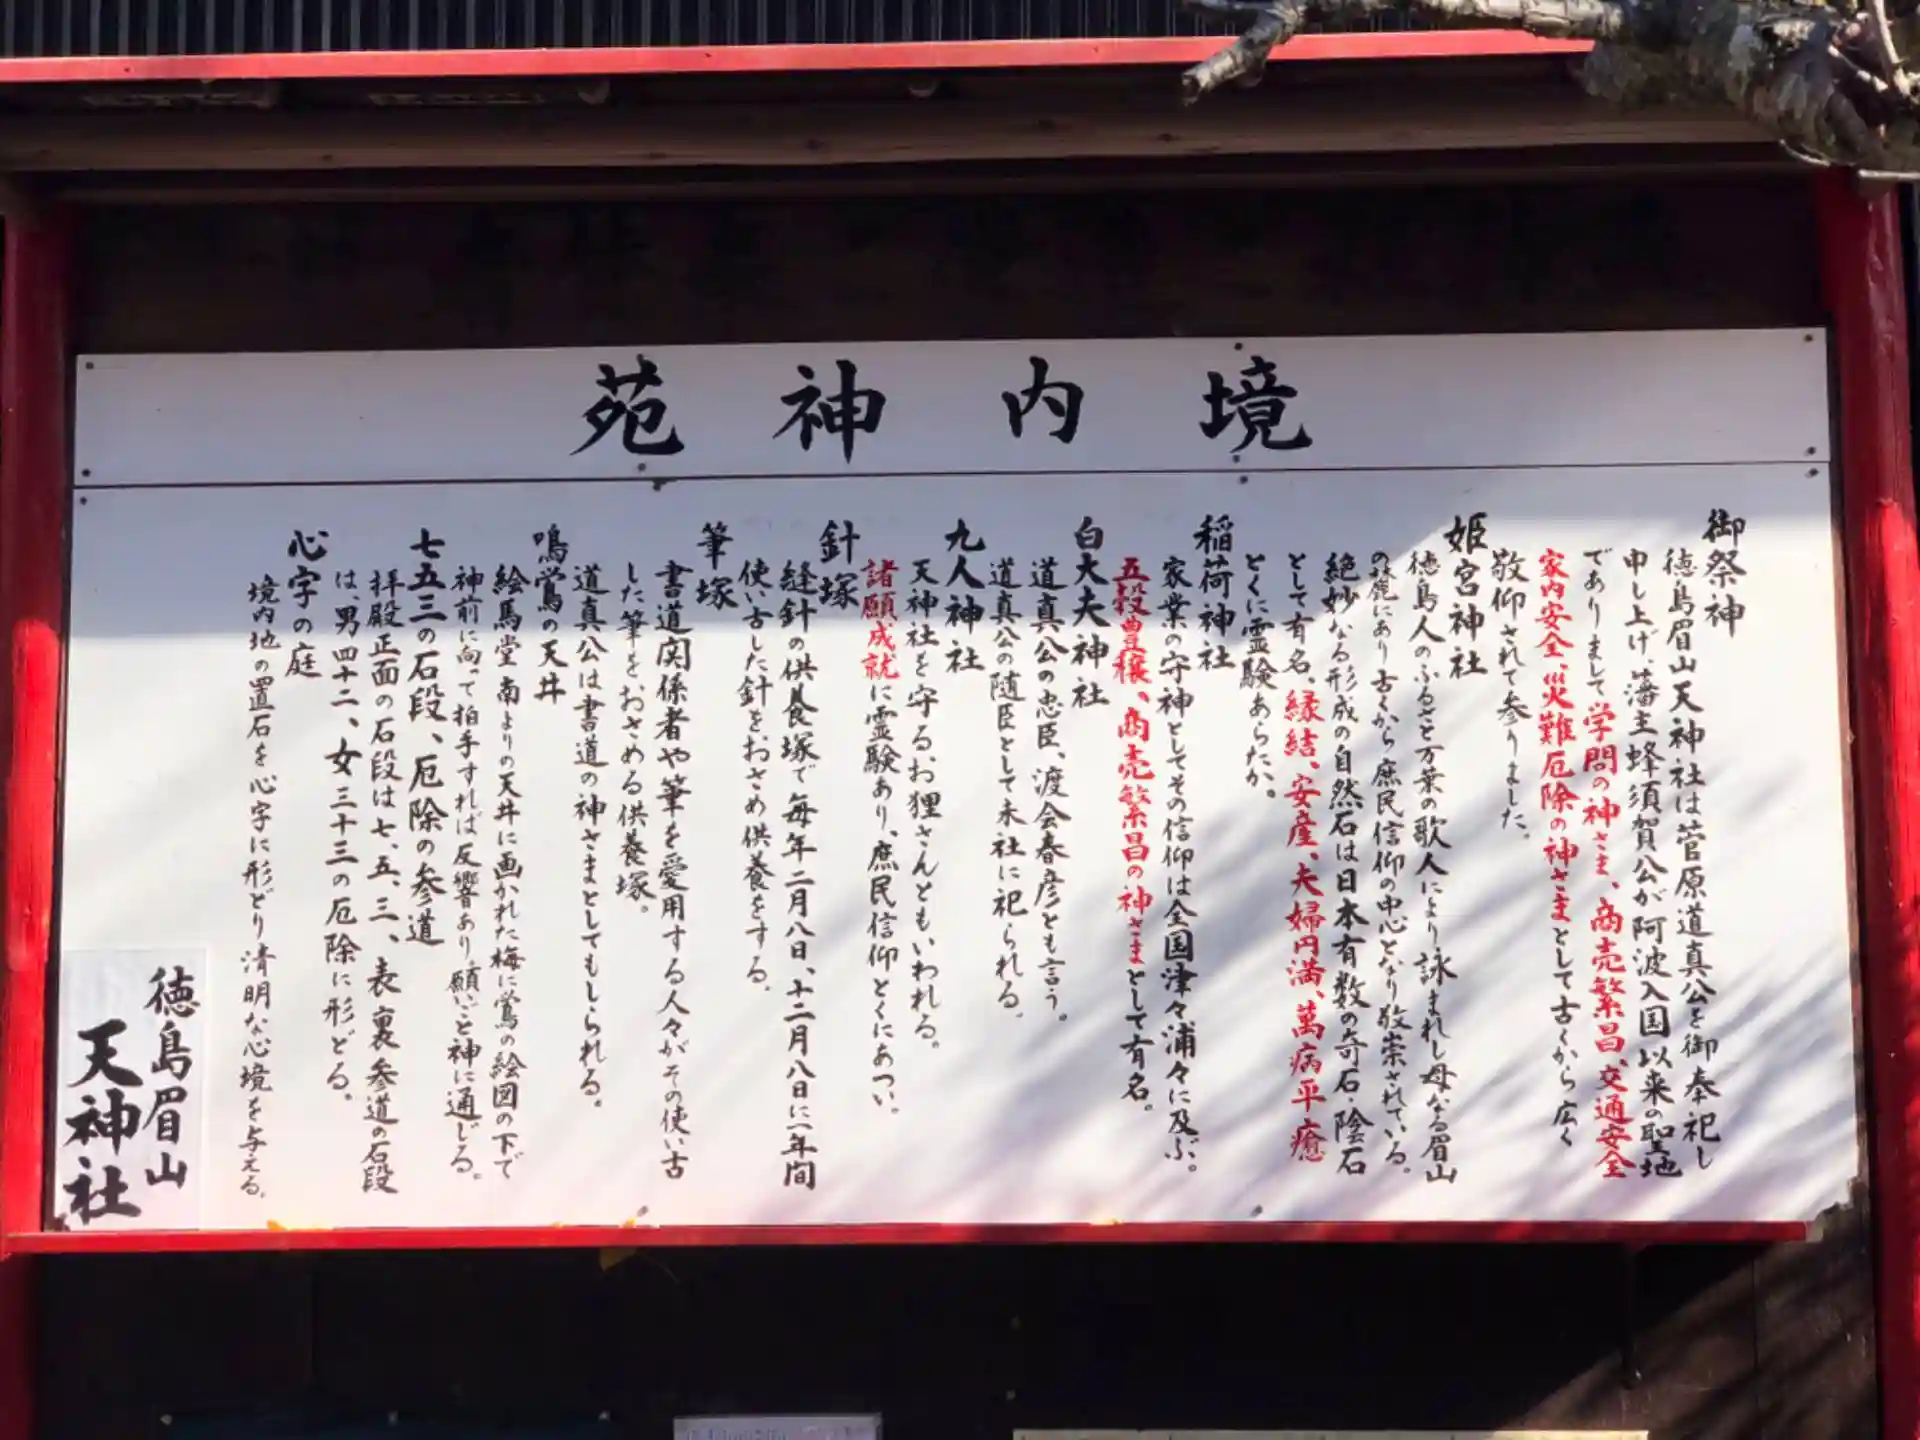 境内神苑
御祭神
徳島眉山天神社は菅原道真公を御奉祀し
申し上げ、藩主蜂須賀公が阿波入国以来の聖地
でありまして学問の神さま、商売繁昌、交通安全
家内安全、災難厄除の神さまとして古くから広く
敬仰されて参りました。
姫宮神社
徳島人のふるさと万葉の歌人により詠まれし母なる眉山
の麓にあり古くから庶民信仰の中心となり敬崇されている。
絶妙なる形成の自然石は日本有数の奇石・陰石
として有名、縁結、安産、夫婦円満、萬病平癒
とくに霊験あらたか。
稲荷神社
家業の守神としてその信仰は全国津々浦々に及ぶ。
五穀豊穣、商売繁昌の神さまとして有名。
白大夫神社
道真公の忠臣、渡会春彦とも言う。
道真公の随臣として末社に祀られる。
九人神社
天神社を守るお狸さんともいわれる。
諸願成就に霊験あり、庶民信仰とくにあつい。
針塚
縫針の供養塚で毎年二月八日、十二月八日に一年間
使い古した針をおさめ供養をする。
筆塚
書道関係者や筆を愛用する人々がその使い古
した筆をおさめる供養塚。
道真公は書道の神さまとしてもしられる。
鳴鴬の天井
絵馬堂南よりの天井に画かれた梅に鴬の絵図の下で
神前に向って拍手すれば反響あり、願いごと神に通じる。
七五三の石段、厄除の参道
拝殿正面の石段は七、五、三、表裏参道の石段
は、男四十二、女三十三の厄除に形どる。
心字の庭
境内地の置石を心字に形どり清明な心境を与える。
徳島眉山
天神社